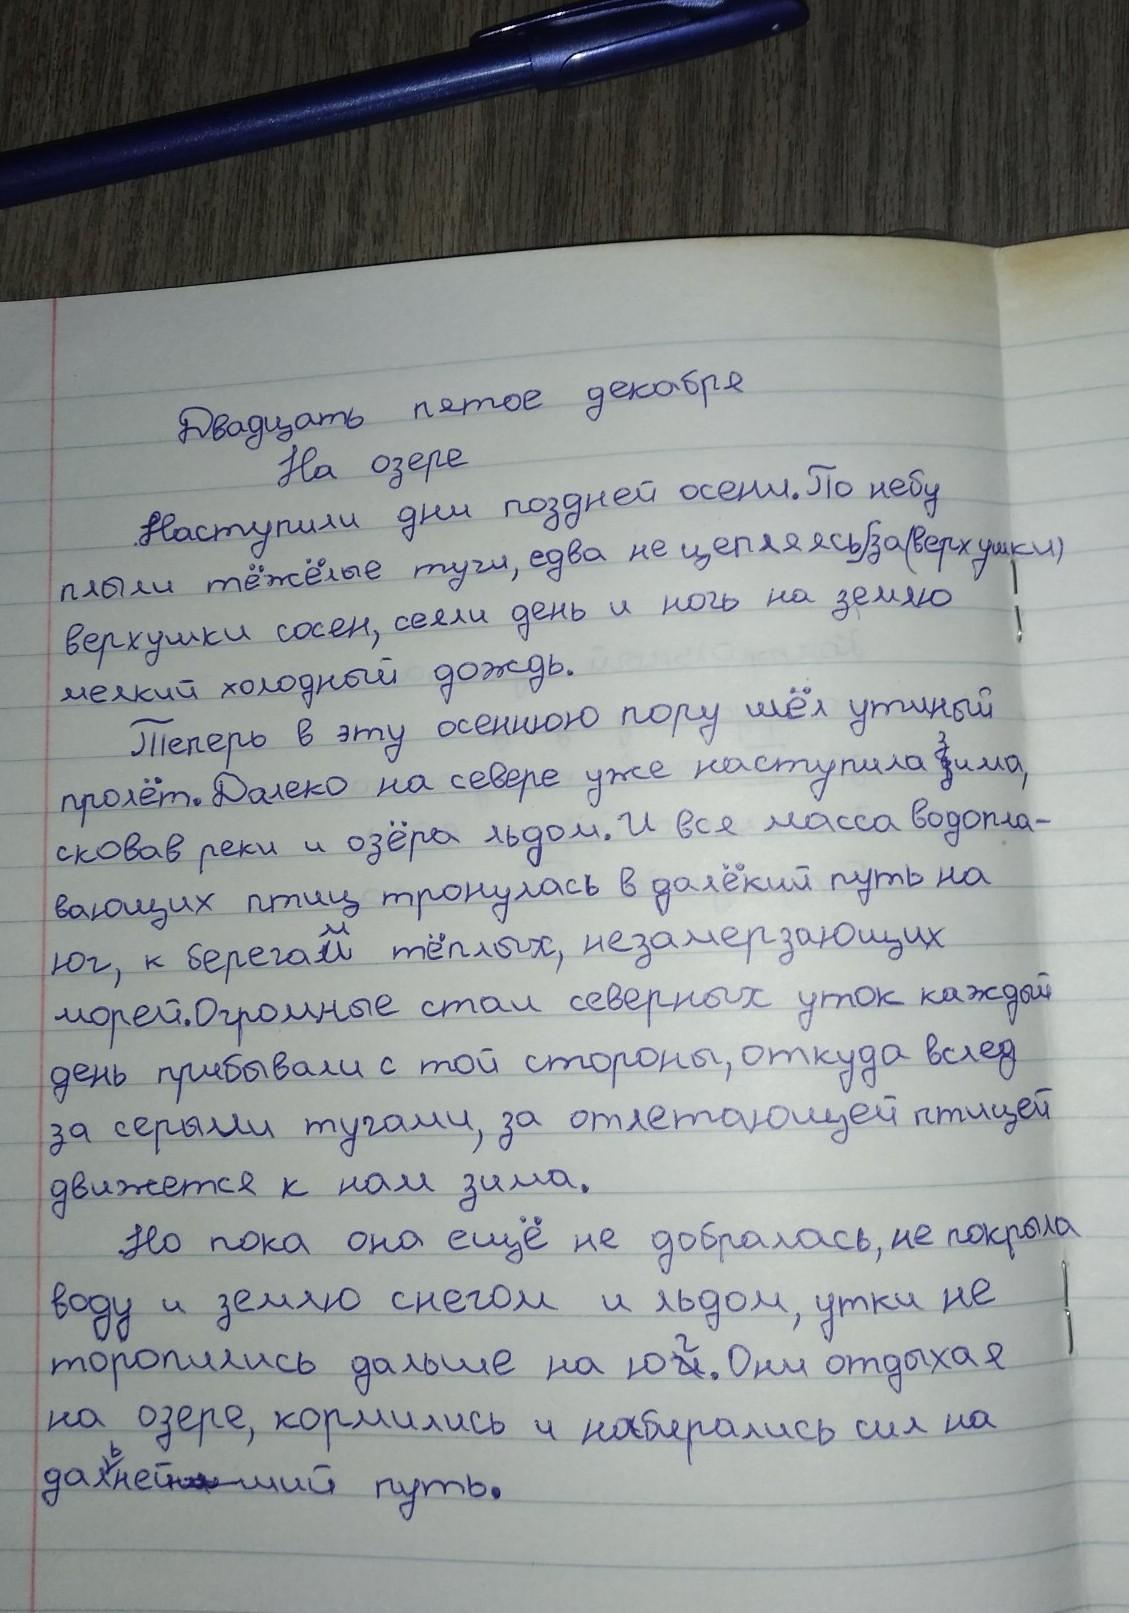 Двадцать пятое декабря
На озере
Наступили дни поздней осени. По небу
плыли тёжёлые тучи, едва не цепляясь за (верхушки)
верхушки сосен, сеяли день и ночь на землю
мелкий холодный дождь.
Теперь в эту осеннюю пору шёл утиный
пролёт. Далеко на севере уже наступила зима,
сковав реки и озёра льдом. И вся масса водопла-
вающих птиц тронулась в далёкий путь на
юг, к берегам тёплых, незамерзающих
морей. Огромные стаи северных уток каждый
день прибывали с той стороны, откуда вслед
за серыми тучами, за отлетающей птицей
движется к нам зима.
Но пока она ещё не добралась, не покрыла
воду и землю снегом и льдом, утки не
торопились дальше на юг. Они отдыхая
на озере, кормились и набирались сил на
дальнейший путь.